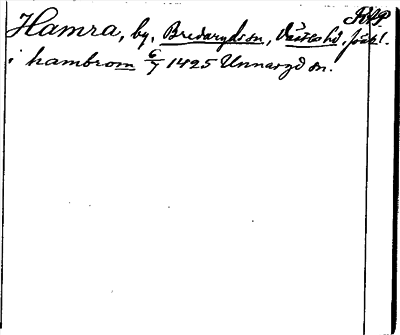 Hamra, by, Bredaryds sn, Västbo hd, Jönk l.
i hambrom 6/7 1425 Unnaryd sn.